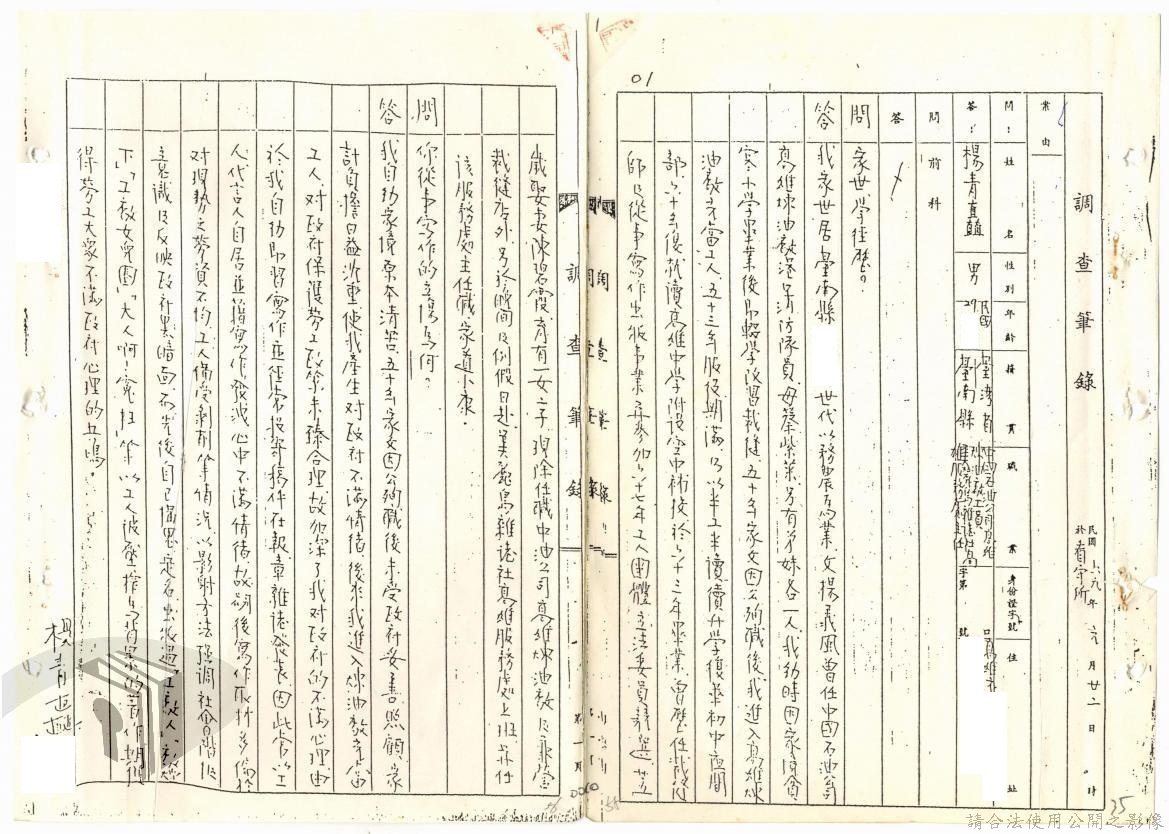 調查筆錄
民國六九年元月廿二日 時
於看守所
案由
問：姓名 性別 年齡 籍貫 職業 身份證字號 住址
答：楊青矗 男 民國29 臺灣省臺南縣 字第 號 高雄市
問 前科
答
問 家世、學經歷。
答 我家世居臺南縣 世代以務農為業、父揚義風曾任中國石油公司
高雄煉油廠港埠消防隊員、母蔡紫菜、另有弟妹各一人、我幼時因家清貧
寒小學畢業後即輟學改習裁縫、五十年家父因公殉職後、我進入高雄煉
油廠充當工人、五十三年服役期滿、乃以半工半讀續升學復華初中夜間
部、六十年後就讀高雄中學附設空中補校、於六十三年畢業、曾歷任裁縫
師及從事寫作出版事業、並參加六十七年工人團體立法委員競選、廿五
01
35
歲娶妻陳碧霞、育有一女二子、現除任職中油公司高雄煉油廠及兼營
裁縫店外、另於晚間及例假日赴美麗島雜誌社高雄服務處上班、並任
該服務處主任職、家道小康。
問 你從事寫作的立場為何？
答 我自幼家境原本清苦、五十年家父因公殉職後、未受政府妥善照顧、家
計負擔日益沈重、使我產生對政府不滿情緒、後我進入煉油廠充當
工人、對政府保護勞工政策未臻合理、故加深了我對政府的不滿心理、由
於我自幼即習寫作、並經常投寄稿件在報章雜誌發表、因此常以工
人代言人自居、並藉寫作發洩心中不滿情緒、故嗣後寫作取材多偏於
對現勢之勞資不均、工人備受剝削等情況、以影射方法強調社會階級
意識及反映政社黑暗面、而先後自己構思定名出版過「工廠人」「在煙囪
下」「工廠女兒圈」「大人啊！冤枉」等以工人被壓榨為背景的著作、期獲
得勞工大眾不滿政府心理的共鳴。
調查筆錄
第一頁
楊青矗
請合法使用公開之影像